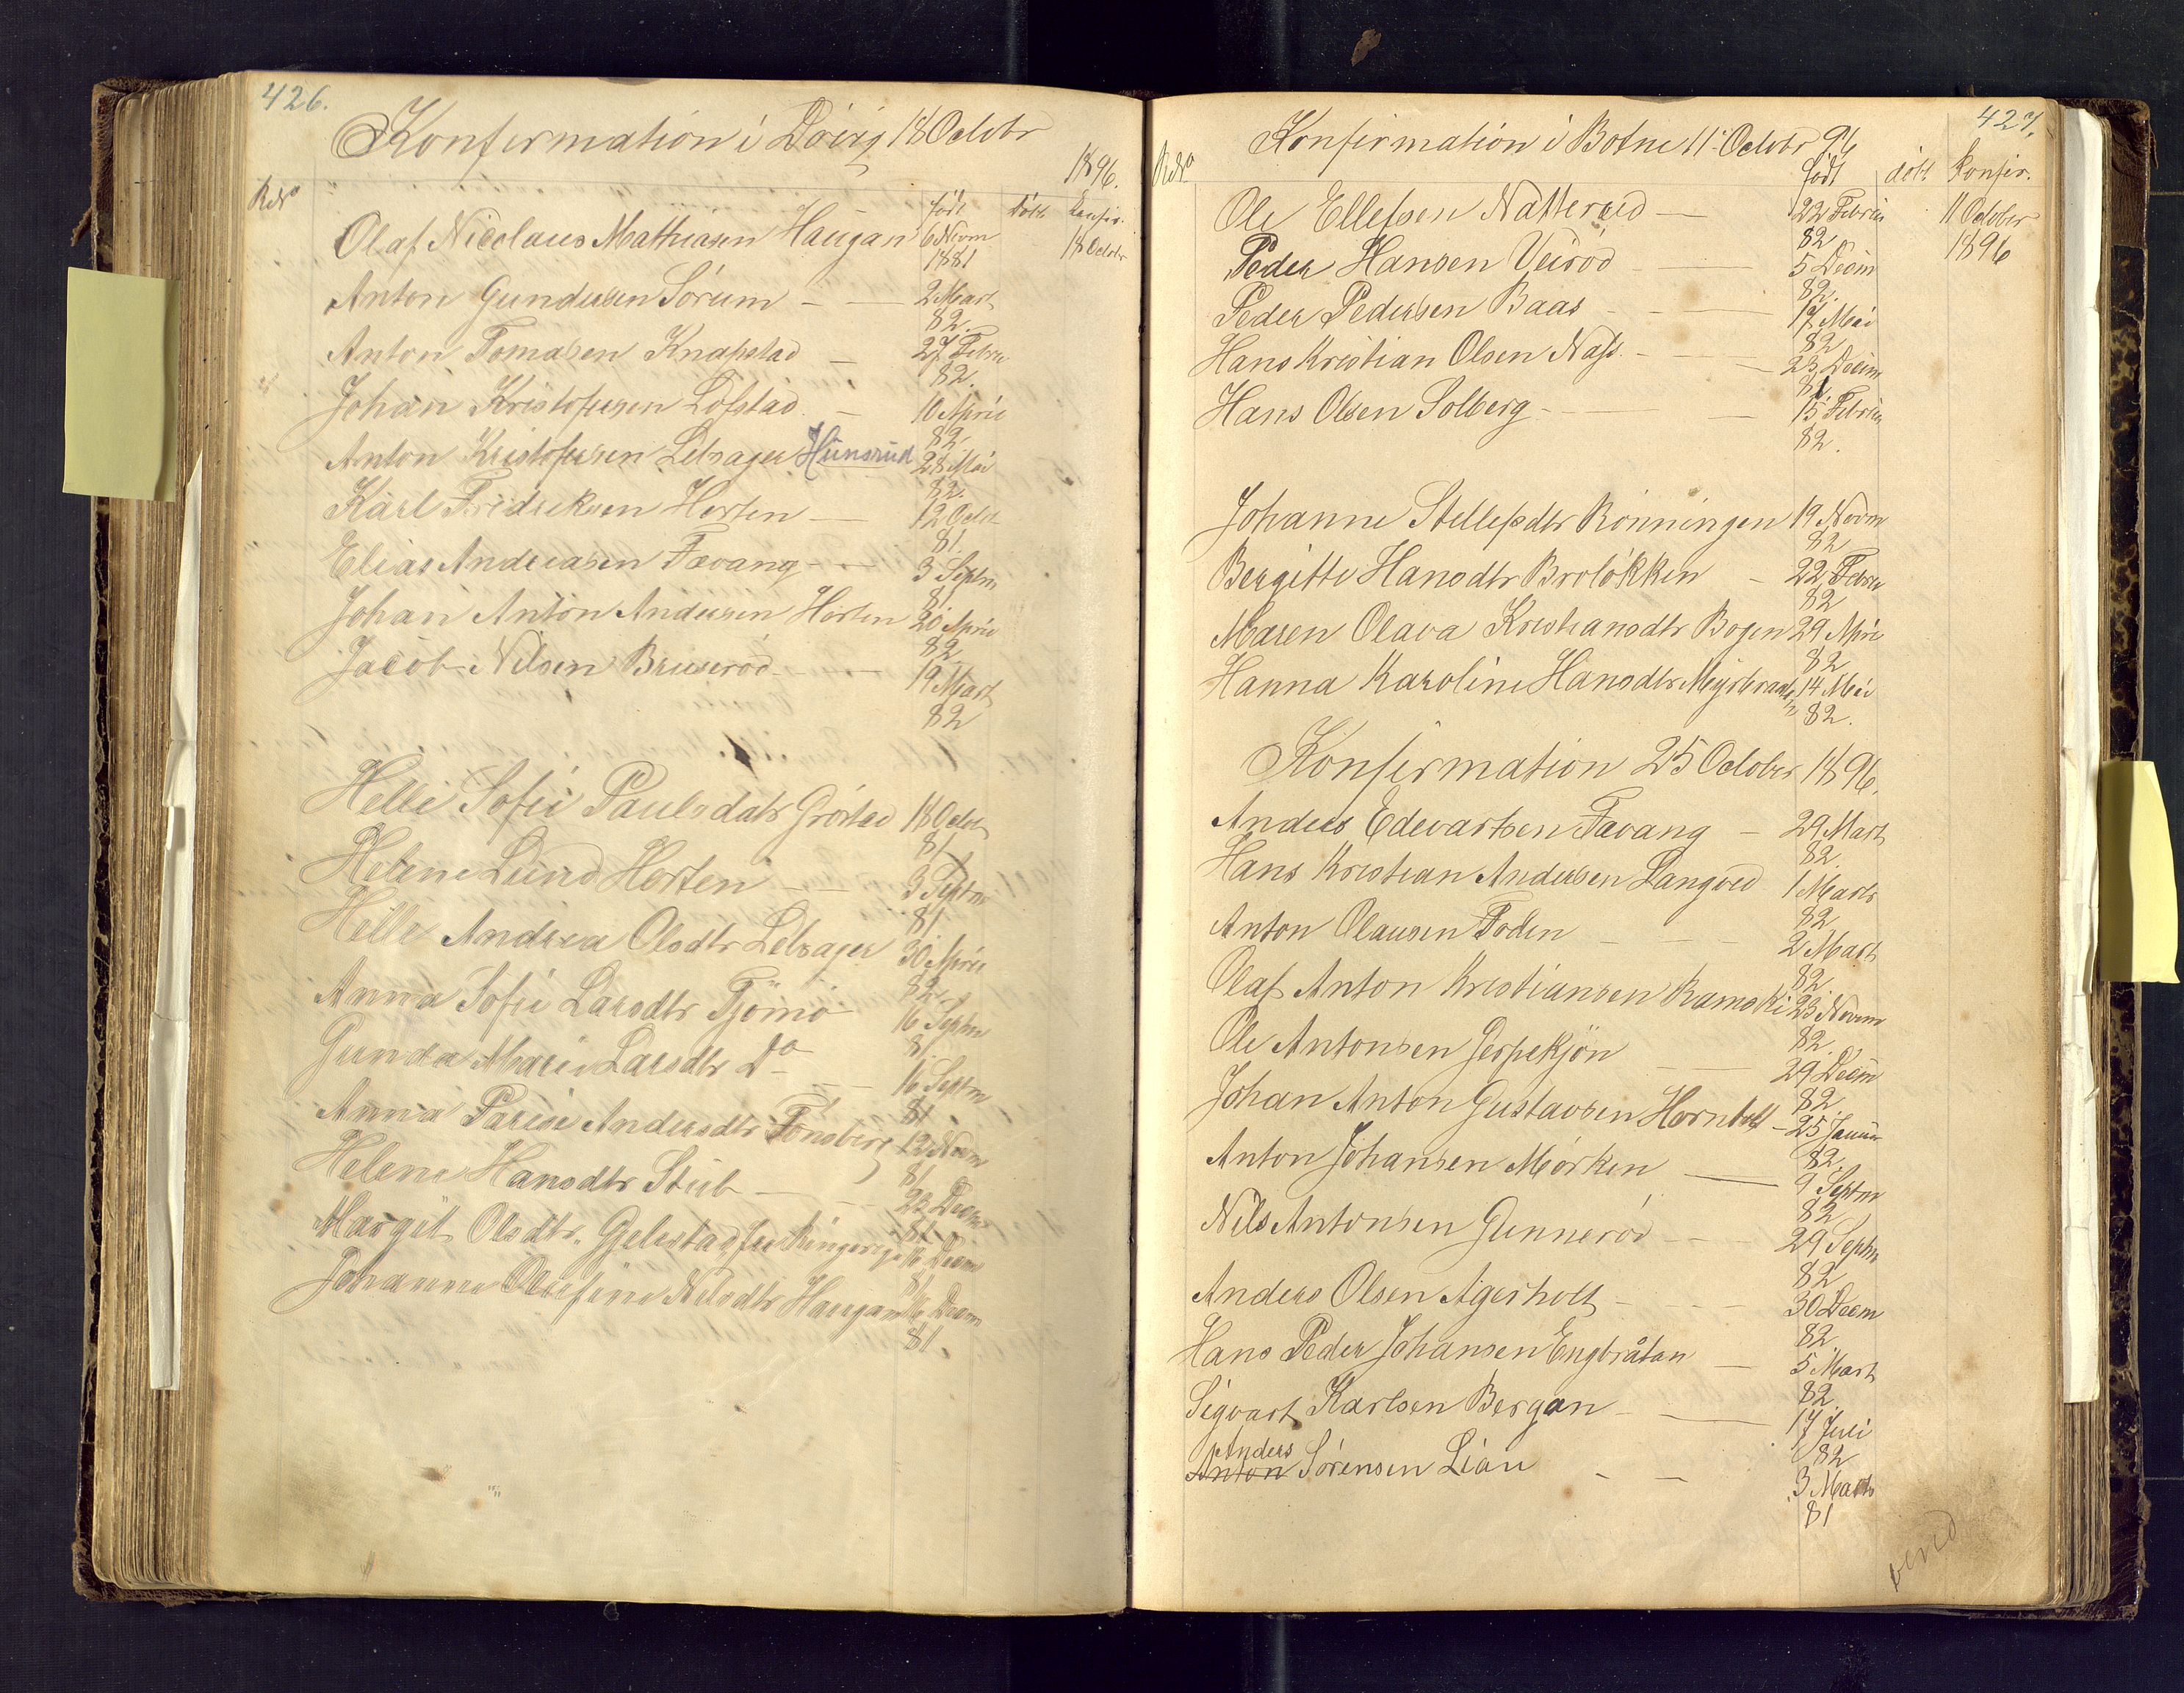 426.
Konfirmation i Dverg 18 Octobr
1896.
RdNo født döbt konfir.
Olaf Nicolaus Mathiasen Haugan 6 Novm 18 Octobr
1881
Anton Gundersen Sörum — — 2 Mart
82.
Anton Tomasen Knapstad — 27 Febru
82.
Johan Kristofersen Lofstad — 10 April
82
Anton Kristofersen Lebsager Hunsrud 28 Mai
82.
Karl Fredriksen Horten — 12 Octb
81.
Elias Andreasen Favang — — 3 Septm
81
Johan Anton Andersen Horten 20 April
82
Jacob Nilsen Bruserød — — 19 Mart
82
Helle Sofie Paulsdatr Gröstad 18 Octb
81
Helene Lund Horten — — 3 Septm
81.
Helle Andrea Olsdtr Lebsager 30 April
82
Anna Sofie Larsdtr Tjömö 16 Septm
81
Gunda Marie Larsdtr Do — — 16 Septm
81
Anna Andersdtr Tönsberg 12 Novm
81
Helene Hansdtr Stub — — 23 Decm
81
Margit Olsdtr. Gjelstad fra Ringerige 16 Decm
81
Johanna Olefine Nilsdtr Haugan Decm
81
427.
Konfirmation i Botne 11. Octobr 96
RdNo født döbt konfir.
Ole Ellefsen Natterud — 22 Febru 11 October
82 1896
Peder Hansen Veiröd — — 5 Decm
82.
Peder Pedersen Baas — — 17 Mai
82
Hans Kristian Olsen Nafs — — 23 Decm
81
Hans Olsen Solberg — — 15 Februa
82.
Johanne Stellefsdtr Rönningen 19 Novm
82
Bergitte Hansdtr Brolökken — 22 Febru
82
Maren Olava Kristiansdtr Bogen 29 April
82
Hanna Karoline Hansdtr Myrbraaten 14 Mai
82.
Konfirmation 25 October 1896.
Anders Edevartsen Favang — 29 Mart
82.
Hans Kristian Andersen Langved 1 Marts
82
Anton Olausen Foden — — — 2 Mart
82.
Olaf Anton Kristiansen Ramski 23 Novem
82.
Ole Antonsen Jerpekjön — — 29 Decm
82
Johan Anton Gustavsen Horntvdt — 25 Januar
82
Anton Johansen Mörken — — 9 Septm
82
Nils Antonsen Gunneröd — — 29 Septm
82
Anders Olsen Agerholt — — — 30 Decm
82
Hans Peder Johansen Engbråtan — 5 Mart
82
Sigvart Karlsen Bergan — — 17 Juli
82
Anders
Anton Sörensen Lian — — 3 Marts
81
vend